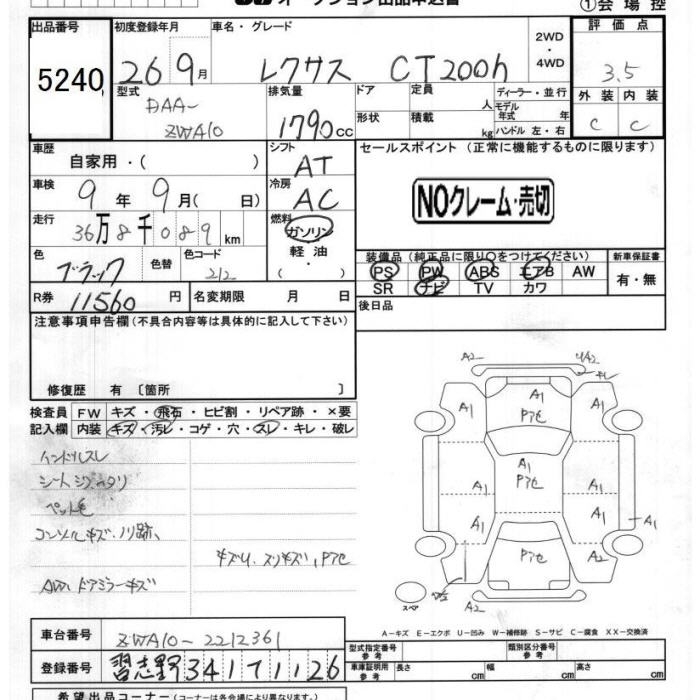 ①会場控
出品番号
5240
初度登録年月
26 9月
車名・グレード
レクサス CT200h
2WD
・
4WD
評価点
3.5
外装 内装
C C
型式
DAA-
ZWA10
排気量
1790cc
ドア
定員 人
形状
積載 kg
ディーラー・並行
モデル
年式 年
ハンドル 左・右
車歴
自家用・( )
シフト
AT
車検
9年9月( 日)
冷房
AC
走行
36万8千089km
燃料
ガソリン
軽油
・
( )
色
ブラック
色替
色コード
212
R券
11560円
名変期限 月 日
セールスポイント (正常に機能するものに限ります)
NOクレーム・売切
装備品 (純正品に限り○をつけてください)
PS PW ABS エアB AW
SR ナビ TV カワ
新車保証書
有・無
後日品
注意事項申告欄 (不具合内容等は具体的に記入して下さい)
修復歴 有 〔箇所 〕
検査員 FW キズ・飛石・ヒビ割・リペア跡・×要
記入欄 内装 キズ・汚レ・コゲ・穴・スレ・キレ・破レ
ハンドルスレ
ペット毛
コンソルキズ、ノリ跡、
AW、ドアミラーキズ
A2 A2
A1 A1 A1
Pアセ
A1
Pアセ
A1 A1
A1 A1 A1
Pアセ
A2
A2
スペア
A-キズ E-エクボ U-凹み W-補修跡 S-サビ C-腐食 XX-交換済
車台番号
ZWA10-2212361
登録番号
習志野341 71126
型式指定番号
参考
類別区分番号
参考
車庫証明用
参考
長さ cm
幅 cm
高さ cm
希望出品コーナー (コーナーは各会場により異なります。)